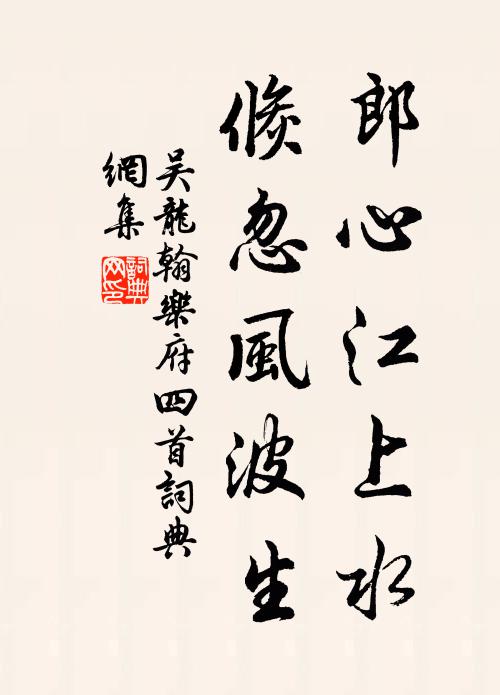 郎心江上水
倏忽風波生
吴龍翰樂府四首詞典
網集
詞典
网印